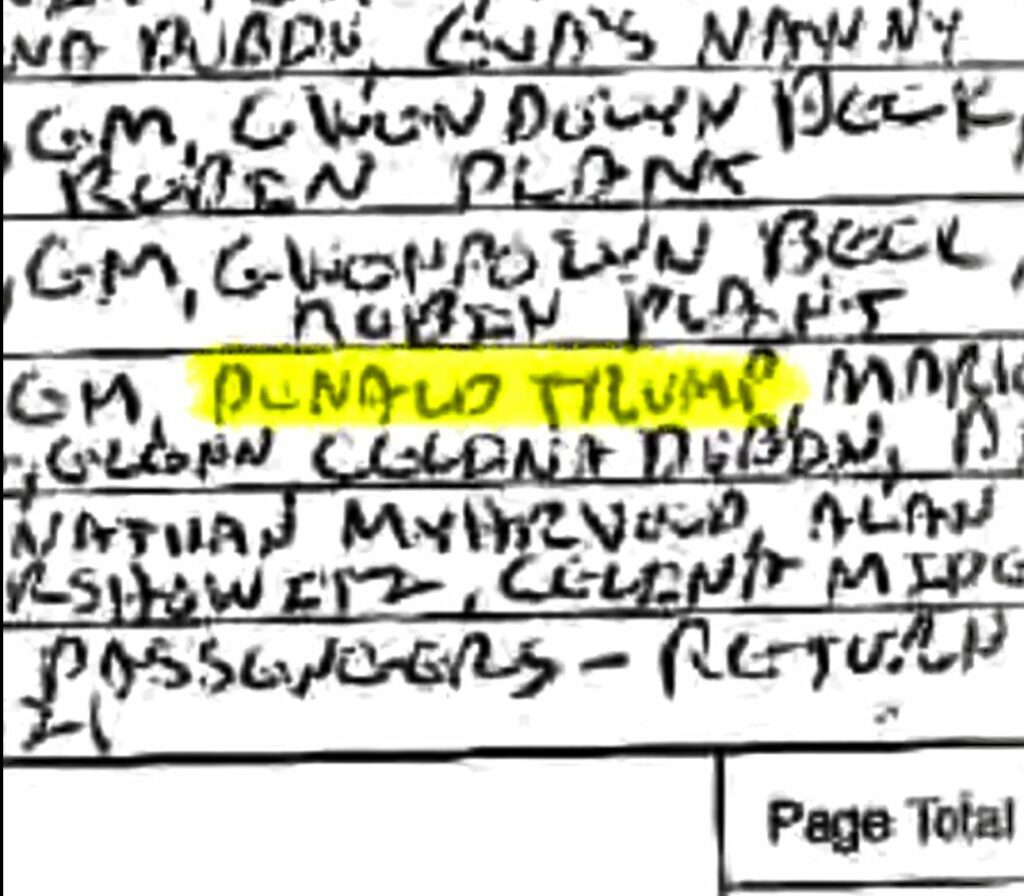 NA DUBIN, EVA'S NANNY
GM, GWENDOLYN BECK,
RUBEN PLANK
, GM, GWENDOLYN BECK,
RUBEN PLANK
GM, DONALD TRUMP, MARK
CELENA DUBAN,
NATHAN MYHRVOLD, ALAN
RSHOWITZ, CELENA MIDG
PASSENGERS – RETURN
Page Total